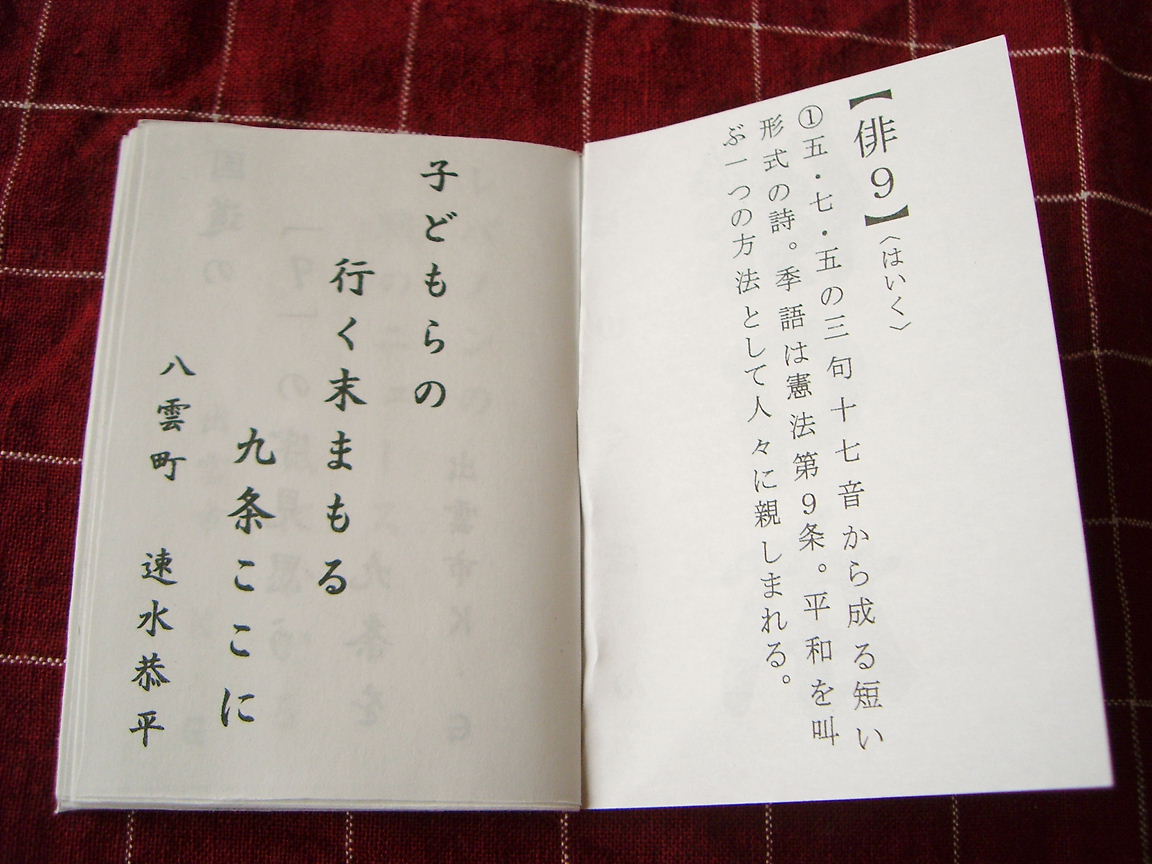 【俳９】〈はいく〉
①五・七・五の三句十七音から成る短い
形式の詩。季語は憲法第９条。平和を叫
ぶ一つの方法として人々に親しまれる。
子どもらの
行く末まもる
九条ここに
八雲町　速水恭平